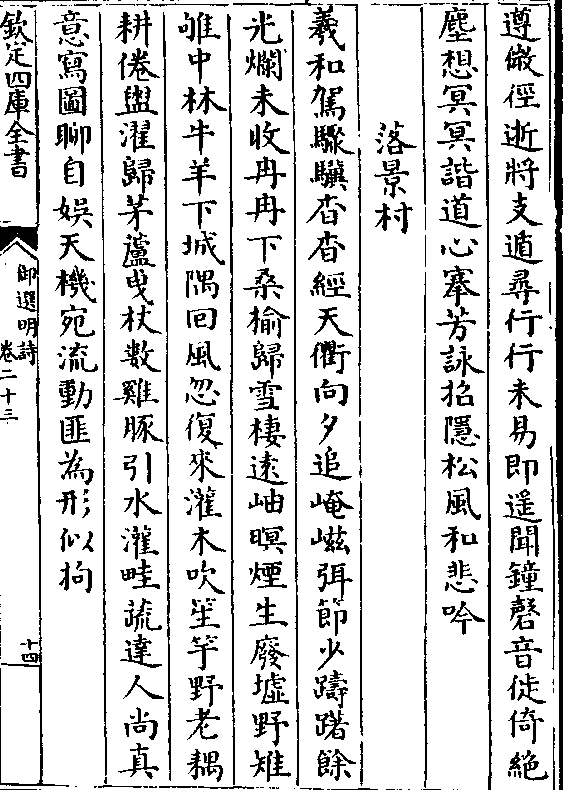 遵微徑逝將支遁尋行行未易即遥聞鐘磬音徙倚絶
塵想冥冥諧道心搴芳詠招隱松風和悲吟
落景村
羲和駕驟驥杳杳經天衢向夕追崦嵫弭節少躊躇餘
光爛未收冉冉下桑榆歸雲棲遠岫暝煙生廢墟野雉
雊中林牛羊下城隅回風忽復來灌木吹笙竽野老耦
耕倦盥濯歸茅蘆曳杖數雞豚引水灌畦蔬達人尚真
意寫圖聊自娯天機宛流動匪為形似拘
欽定四庫全書
御選明詩
卷二十三
十四